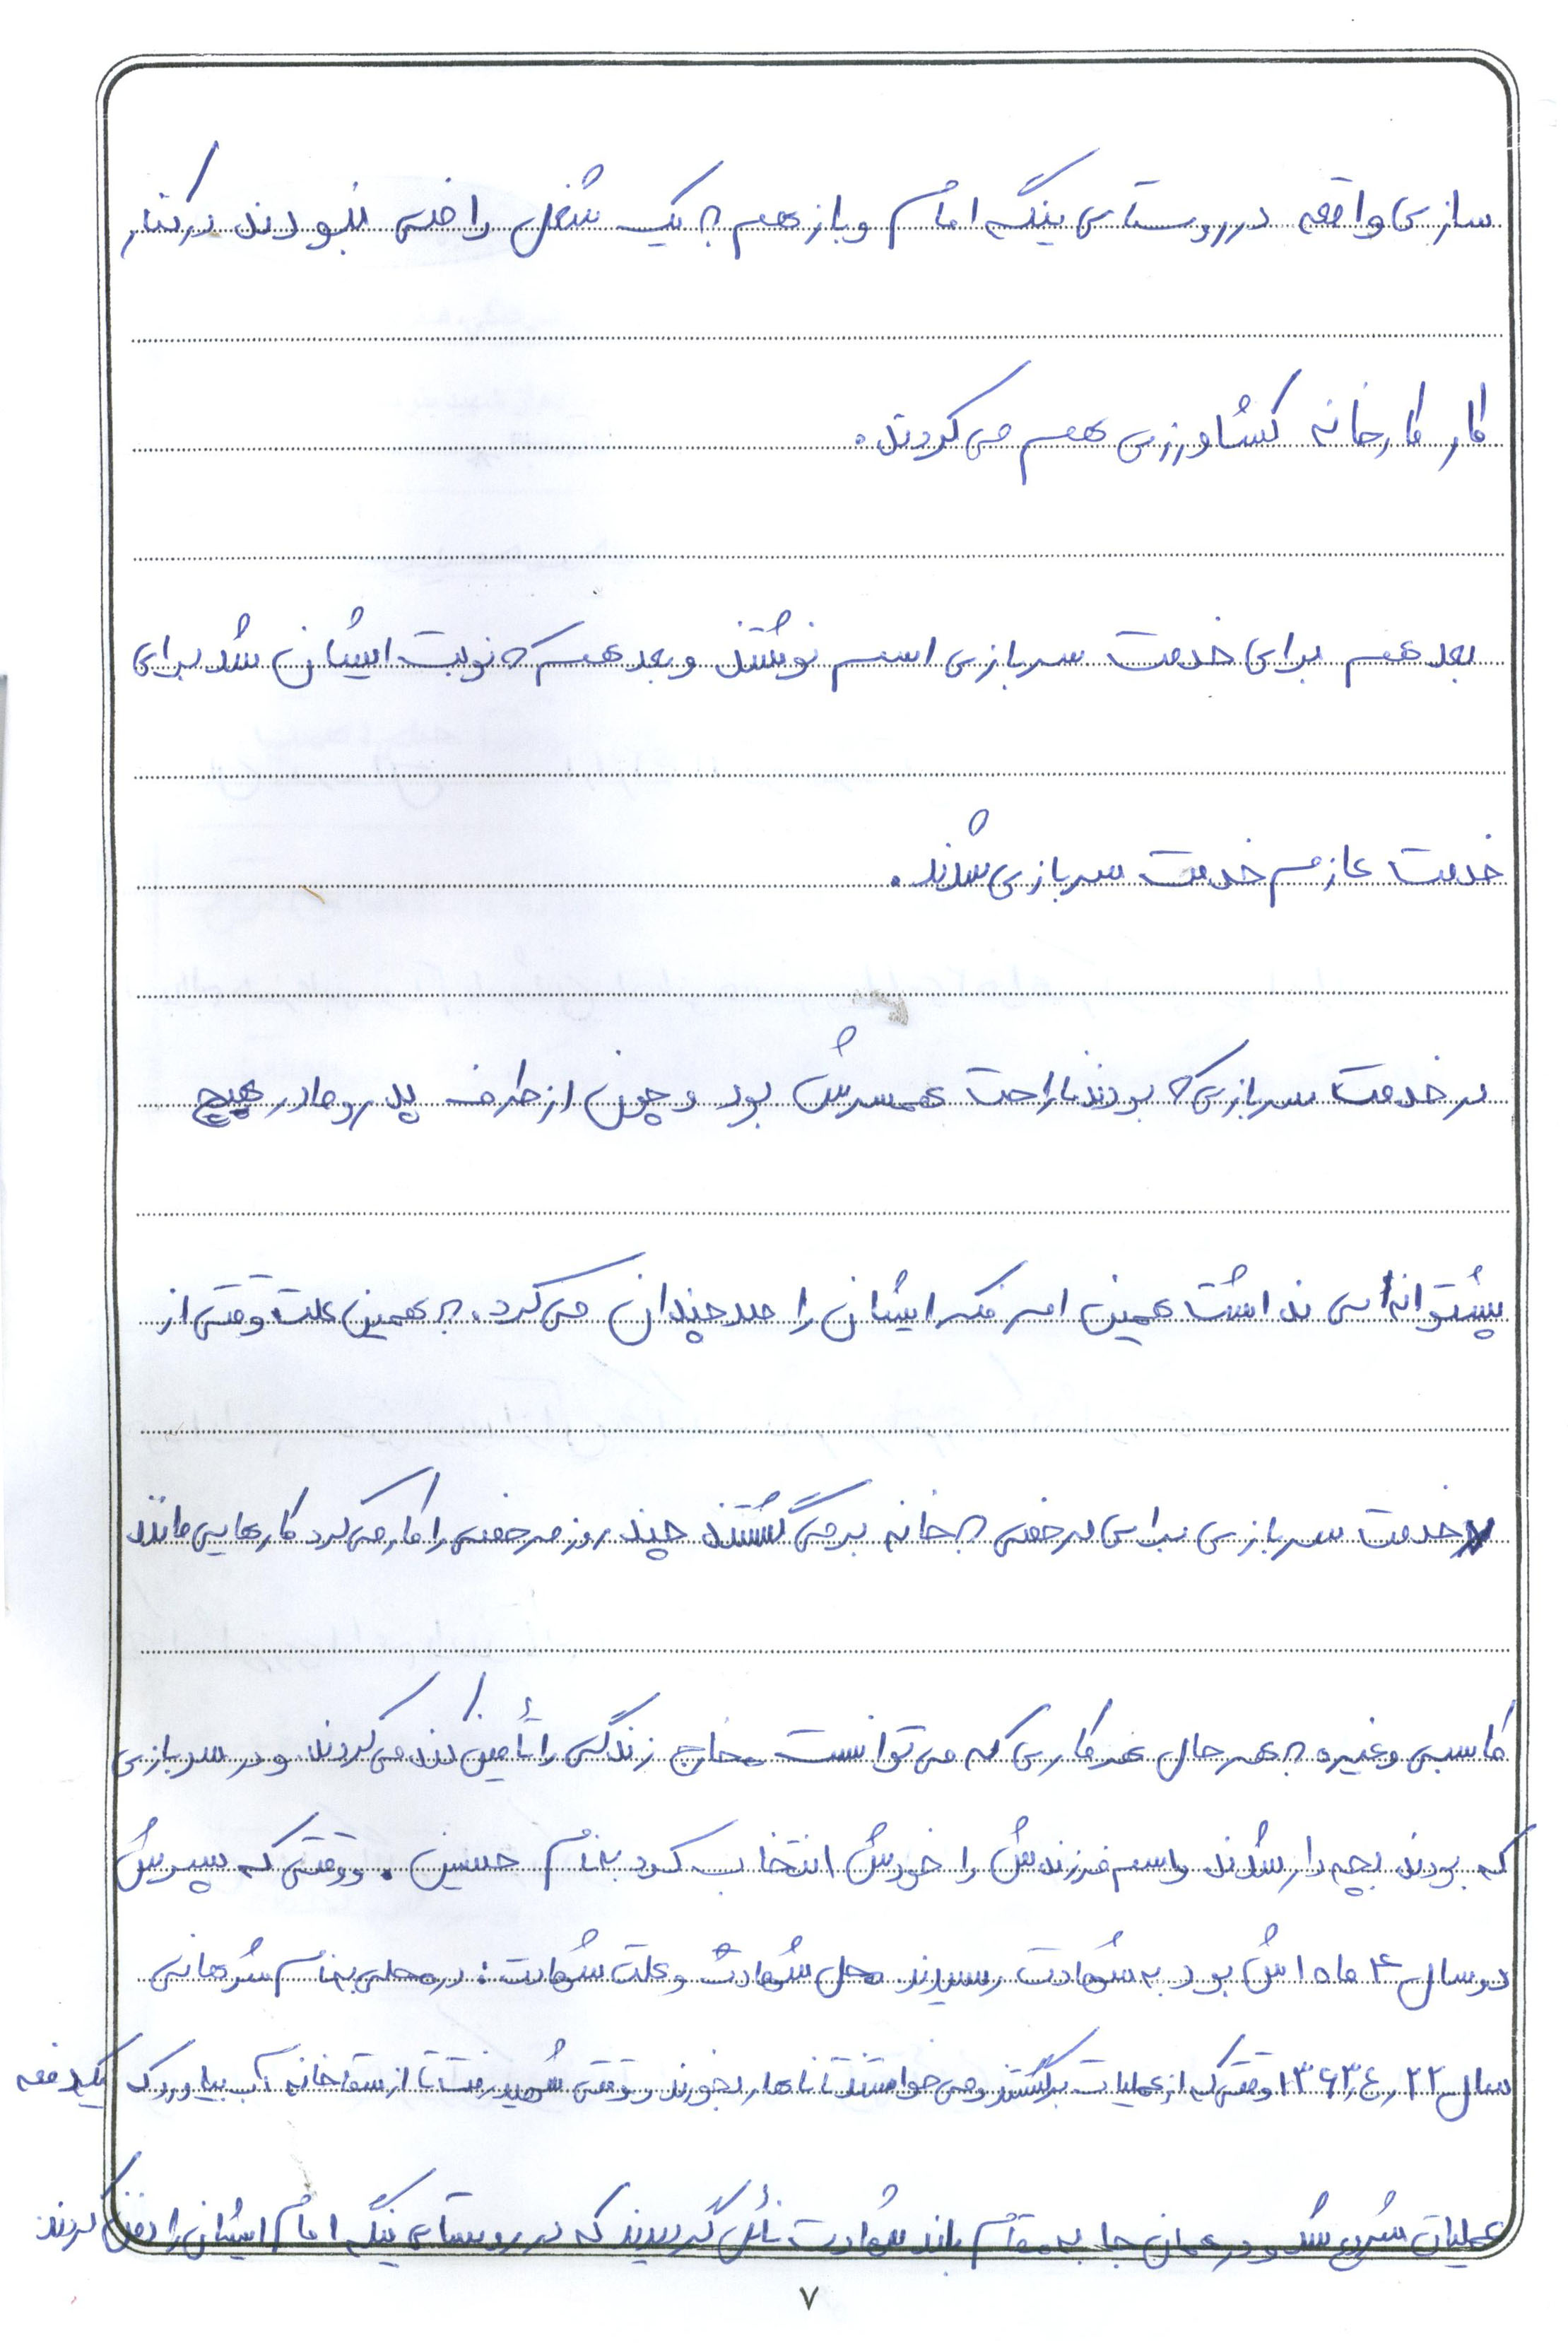 سازی واقعه در روستای ینگه امام و باز هم به یک شغل راضی نبودند در کنار
کار کارخانه کشاورزی هم می کردند.
بعد هم برای خدمت سربازی اسم نوشتند و بعد هم که نوبت ایشان شد برای
خدمت عازم خدمت سربازی شدند.
در خدمت سربازی که بودند ناراحت همسرش بود و چون از طرف پدر و مادر هیچ
پشتوانه ای نداشت همین امر فکر ایشان را صد چندان می کرد. به همین علت وقتی از
خدمت سربازی برای مرخصی به خانه برمی گشتند چند روز مرخصی را کار می کرد کارهایی مانند
کاسبی و غیره به هر حال هر کاری که می توانست مخارج زندگی را تأمین کند می کردند و در سربازی
که بودند بچه دار شدند و اسم فرزندش را خودش انتخاب کرد به نام حسین. و وقتی که پسرش
دو سال ۴ ماه اش بود به شهادت رسیدند محل شهادت و علت شهادت: در محلی به نام شرهانی
سال ۲۲ ر ۴ ر ۱۳۶۳ وقتی که از عملیات برگشتند و می خواستند تا ناهار بخورند و وقتی شهید رفت تا از سقاخانه آب بیاورد که یکدفعه
عملیات شروع شد و در همان جا به مقام بلند شهادت نائل گردیدند که در روستای ینگه امام ایشان را دفن کردند
۷